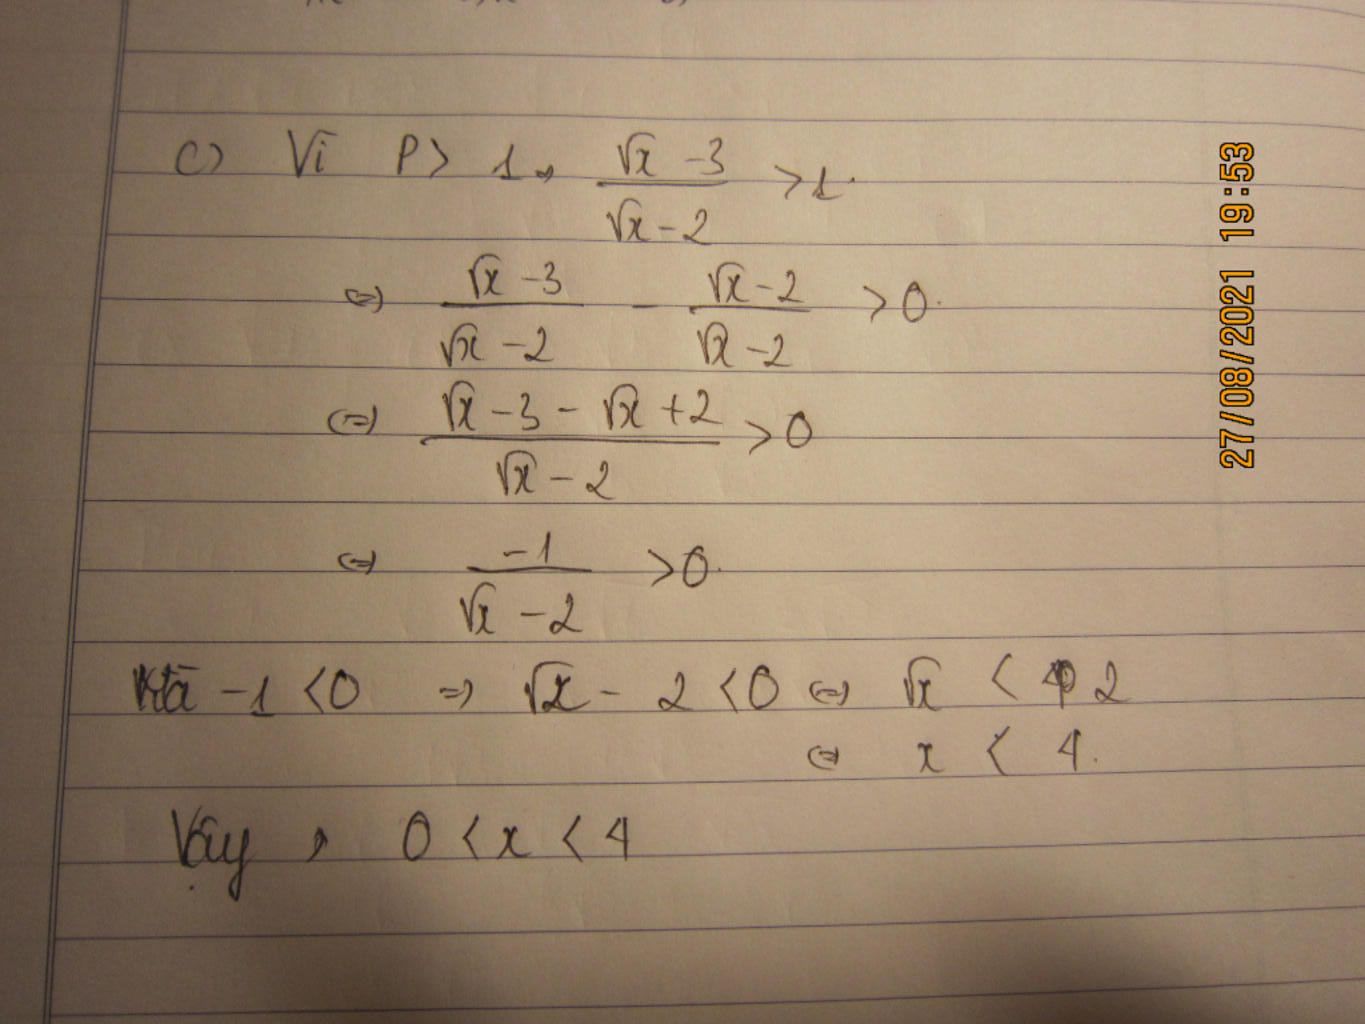 c) Vì P > 1 → (√x - 3)/(√x - 2) > 1.
⇔ (√x - 3)/(√x - 2) - (√x - 2)/(√x - 2) > 0.
⇔ (√x - 3 - √x + 2)/(√x - 2) > 0
⇔ -1/(√x - 2) > 0.
-1 < 0 ⇒ √x - 2 < 0 ⇔ √x < 2
⇔ x < 4.
Vậy, 0 < x < 4
27/08/2021 19:53